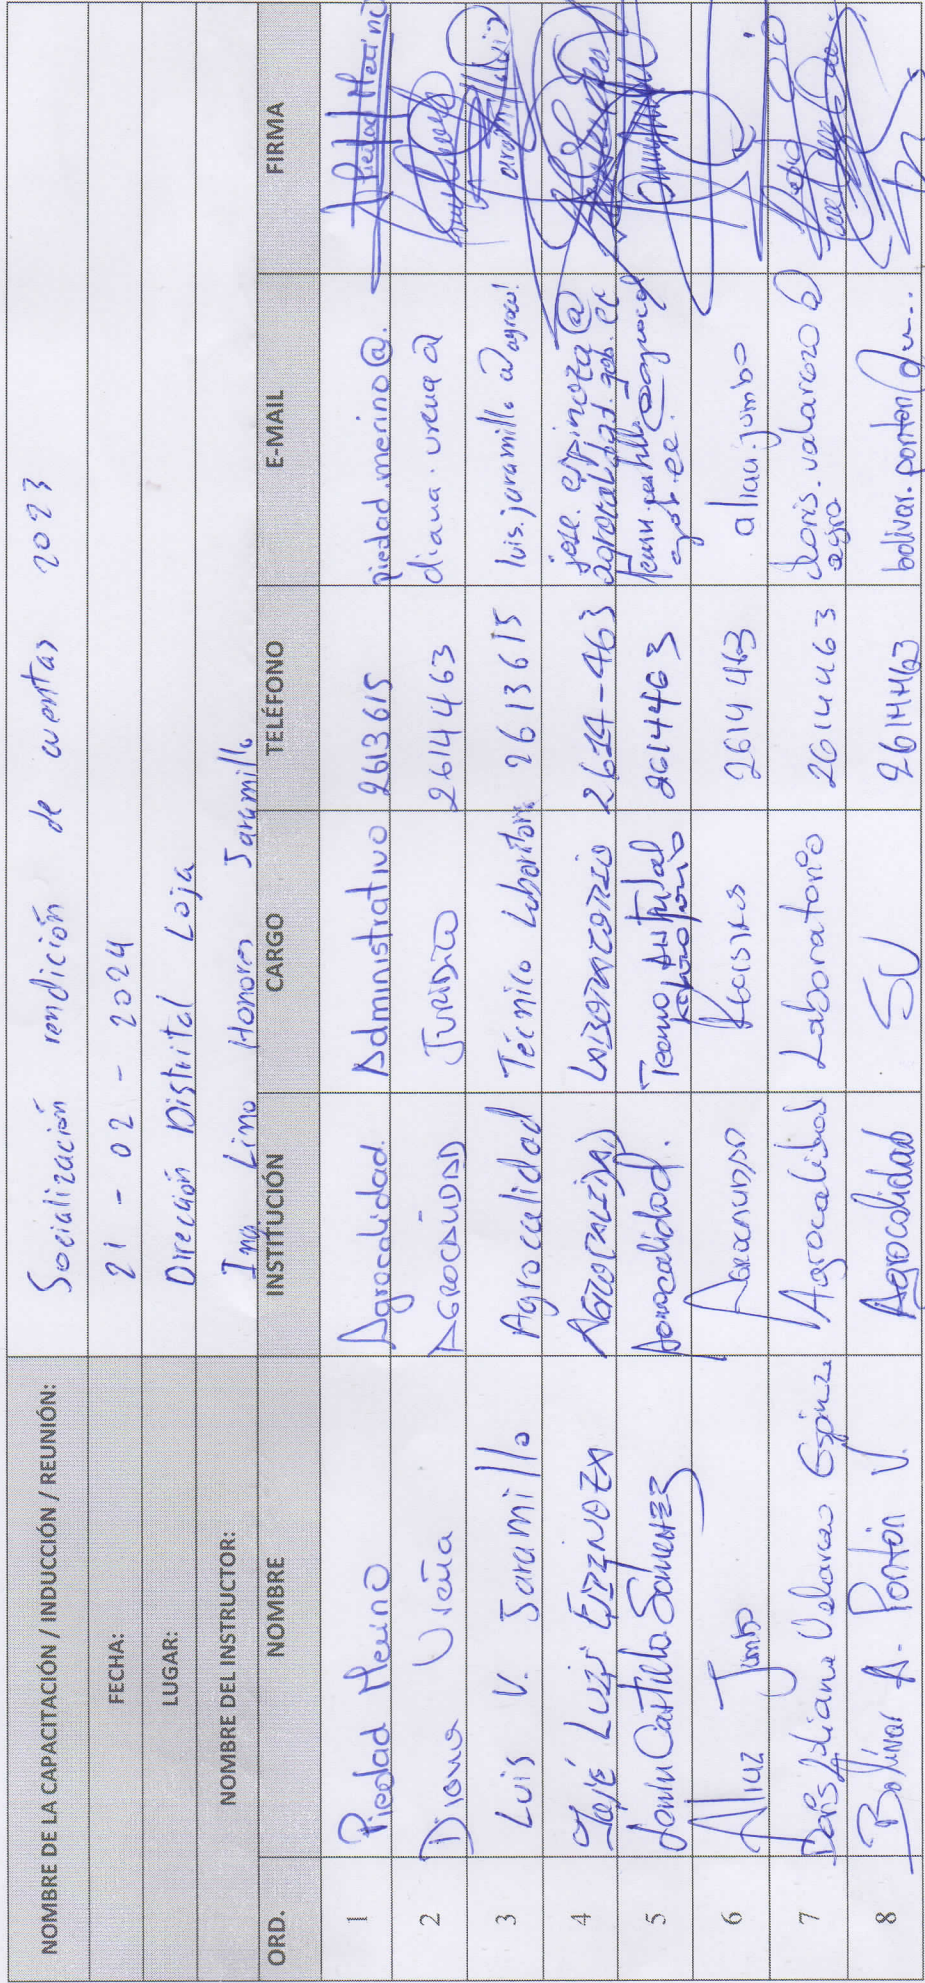 NOMBRE DE LA CAPACITACIÓN / INDUCCIÓN / REUNIÓN: Socialización rendición de cuentas 2023
FECHA: 21 - 02 - 2024
LUGAR: Dirección Distrital Loja
NOMBRE DEL INSTRUCTOR: Ing Lino Honores Jaramillo
ORD. NOMBRE INSTITUCIÓN CARGO TELÉFONO E-MAIL FIRMA
1 Piedad Merino Agrocalidad. Administrativo 2613615 piedad.merino@. Piedad Merino
2 Diana Ureña AGROCALIDAD JURIDICO 2614463 diana.urena@
3 Luis V. Jaramillo Agrocalidad Técnico 2613615 luis.jaramillo@agrocal
4 José Luis Espinoza AGROCALIDAD LABORATORIO 2614-463 jose.espinoza@
agrocalidad.gob.ec
5 Castillo Agrocalidad. 2614463
gob.ec
6 Jumbo AGROCALIDAD 2614463 jumbo
7 Doris Agrocalidad Laboratorio 2614463 doris.valarezo@
agro
8 Bolívar A. Pontón V. Agrocalidad SV 2614463 bolivar.ponton@